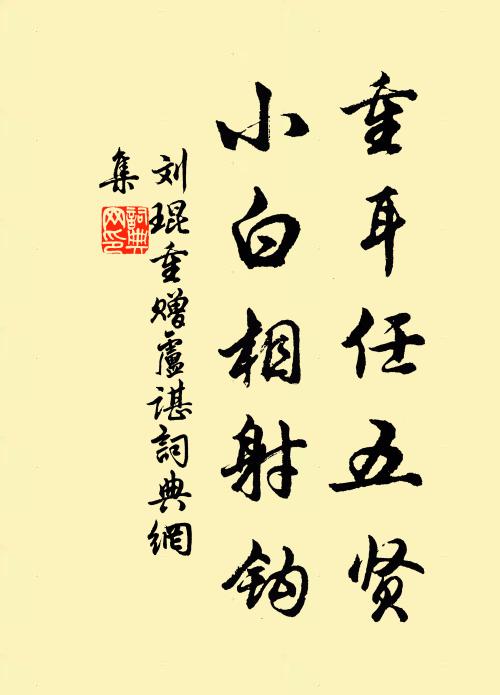 重耳任五贤
小白相射钩
刘琨重赠盧谌詞典網
集
詞典
网印